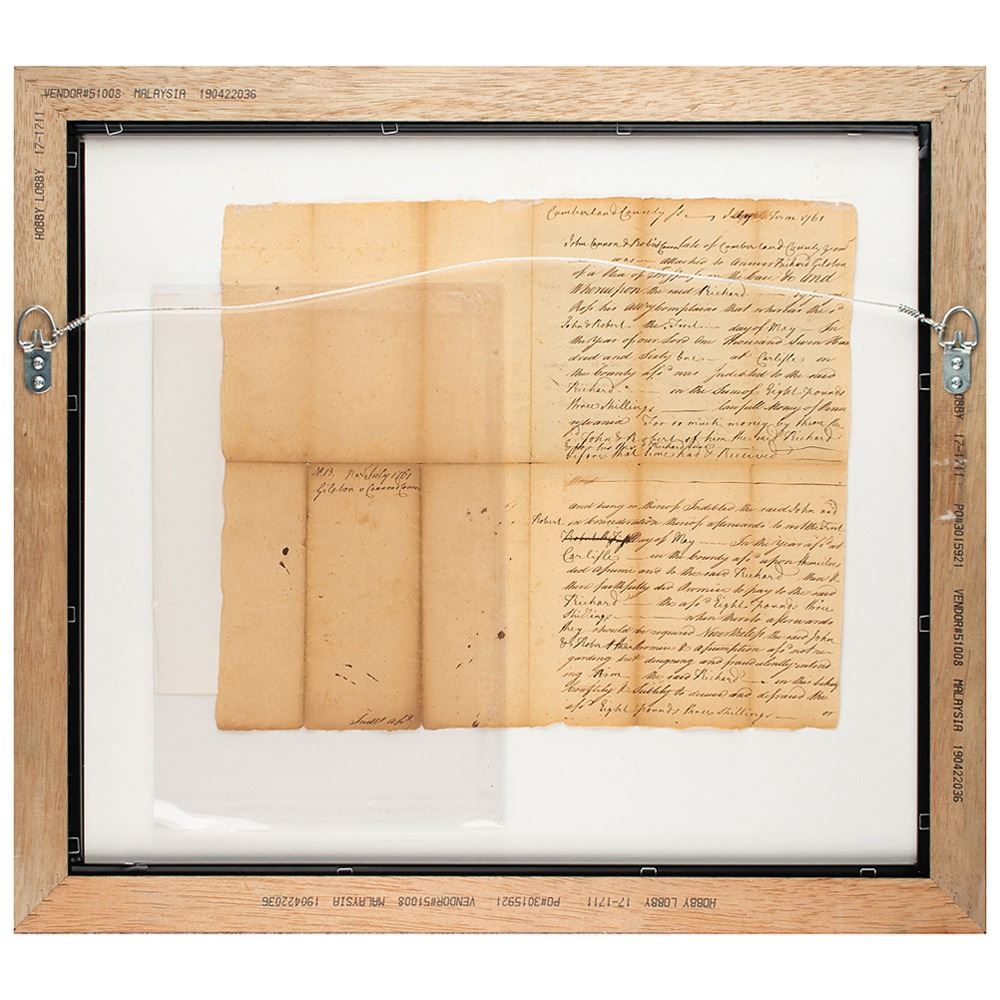 VENDOR#51008 MALAYSIA 190422036
HOBBY LOBBY 17-1711
Cumberland County ss July Term 1761
John Cannon & Robert Cannon late of Cumberland County yeom
was attached to answer Richard Gilston
of a Plea of Trespass on the Case &c And
Whereupon the said Richard by
Ross his Atty Complains that whereas the sd
John & Robert the First day of May In
the Year of our Lord One Thousand Seven Hun
dred and Sixty One at Carlisle in
the County afsd was Indebted to the said
Richard in the Sum of Eight pounds
Three Shillings lawfull Money of Penn
sylvania For so much money by them the
sd John & Robert of him the said Richard
before that time had & Received
and being so thereof Indebted the said John and
Robert in Consideration thereof afterwards to wit the First
Day of May In the Year afsd at
Carlisle in the County afsd upon themselves
did assume and to the said Richard then &
there faithfully did Promise to pay to the said
Richard the afsd Eight pounds Three
Shillings when thereto afterwards
they should be required Nevertheless the said John
& Robert their Promise & assumption afsd not re
garding but designing and fraudulently intend
ing Him the said Richard in this behalf
Craftily & Subtilly to deceive and defraud the
afsd Eight pounds Three Shillings or
No 13 Narr July 1761
Gilston v Cannon & Cannon
HOBBY 17-1711 PO#3015921 VENDOR#51008 MALAYSIA 190422036
HOBBY LOBBY 17-1711 PO#3015921 VENDOR#51008 MALAYSIA 190422036